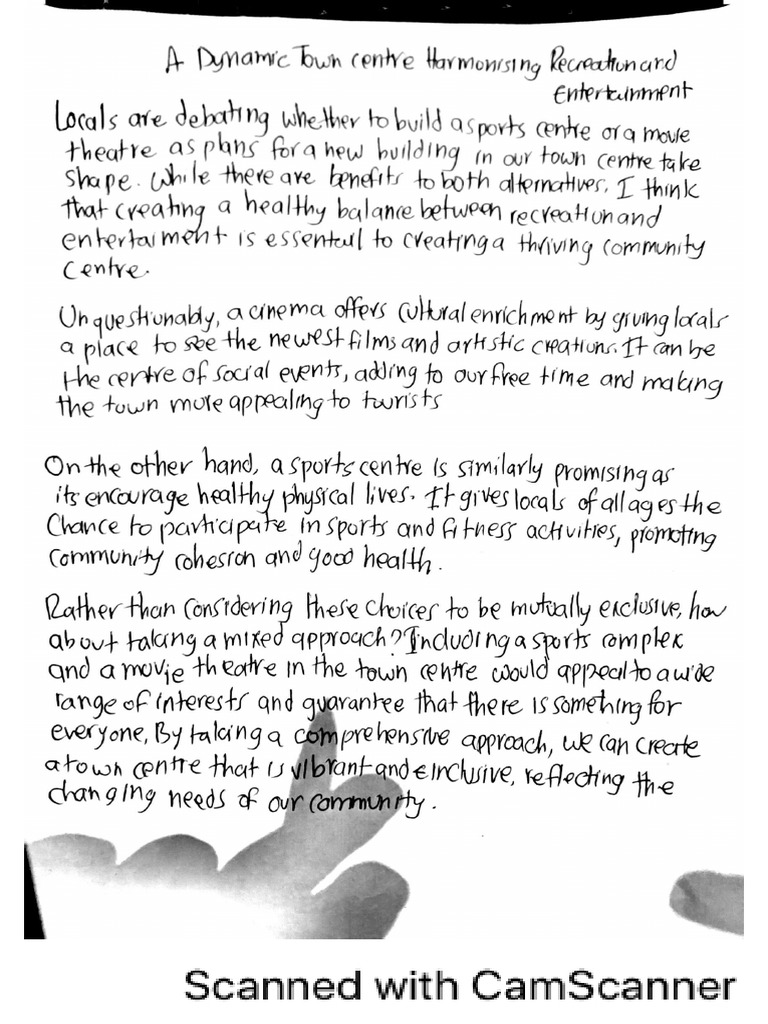 A Dynamic Town centre Harmonising Recreation and
Entertainment
Locals are debating whether to build a sports centre or a movie
theatre as plans for a new building in our town centre take
shape. While there are benefits to both alternatives, I think
that creating a healthy balance between recreation and
entertaiment is essentail to creating a thriving community
Centre.
Unquestionably, a cinema offers cultural enrichment by giving locals
a place to see the newest films and artistic creations. It can be
the centre of social events, adding to our free time and making
the town more appealing to tourists
On the other hand, a sports centre is similarly promising as
its encourage healthy physical lives. It gives locals of all ages the
Chance to participate in sports and fitness activities, promoting
community cohesion and good health.
Rather than considering these choices to be mutually exclusive, how
about taking a mixed approach? Including a sports complex
and a movie theatre in the town centre would appeal to a wide
range of interests and guarantee that there is something for
everyone, By taking a comprehensive approach, we can create
a town centre that is vibrant and inclusive, reflecting the
changing needs of our community.
Scanned with CamScanner